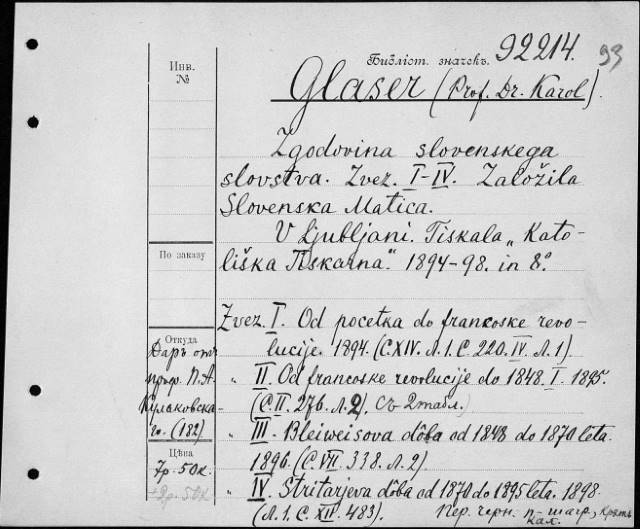 Инв. №
Библіот. значекъ. 92214. 93
Glaser (Prof. Dr. Karol).
Zgodovina slovenskega
slovstva. Zvez. I-IV. Založila
Slovenska Matica.
V Ljubljani. Tiskala „Kato-
liška Tiskarna." 1894-98. in 8°.
По заказу
Zvez. I. Od pocetka do francoske revo-
lucije. 1894. (С. XIV. Л. 1. С. 220. IV. Л. 1)
„ II. Od francoske revolucije do 1848. I. 1895.
(С. II. 276. Л. 2) съ 2 табл.
„ III. Bleiweisova dôba od 1848 do 1870 leta.
1896. (С. VII. 338. Л. 2)
„ IV. Stritarjeva dôba od 1870 do 1895 leta. 1898.
(Л. 1. С. XIV. 483.) Пер. черн. п-шагр.,
Откуда
Даръ отъ
проф. П. А.
Кулаковска-
го. (182)
Цѣна
7р. 50к.